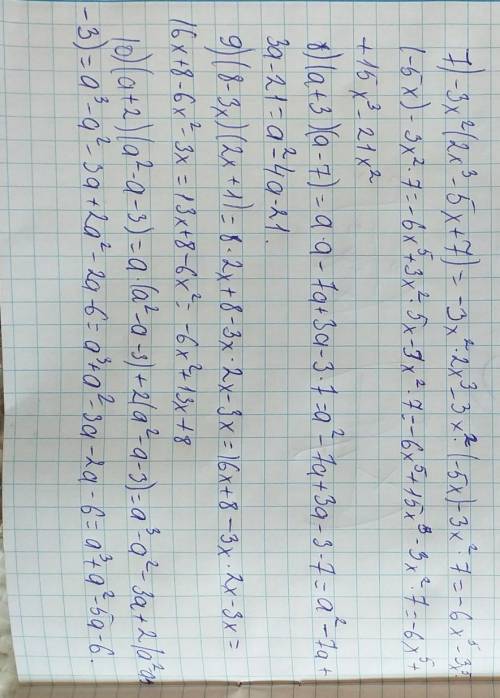 7) -3x²(2x³-5x+7) = -3x²·2x³-3x²·(-5x)-3x²·7=-6x⁵-3x²·
(-5x)-3x²·7=-6x⁵+3x²·5x-3x²·7=-6x⁵+15x³-3x²·7=-6x⁵+
+15x³-21x²
8) (a+3)(a-7)=a·a-7a+3a-3·7=a²-7a+3a-3·7=a²-7a+
3a-21=a²-4a-21.
9) (8-3x)(2x+1)=8·2x+8-3x·2x-3x=16x+8-3x·2x-3x=
16x+8-6x²-3x=13x+8-6x²=-6x²+13x+8
10) (a+2)(a²-a-3)=a·(a²-a-3)+2(a²-a-3)=a³-a²-3a+2(a²-a
-3)=a³-a²-3a+2a²-2a-6=a³+a²-3a-2a-6=a³+a²-5a-6.